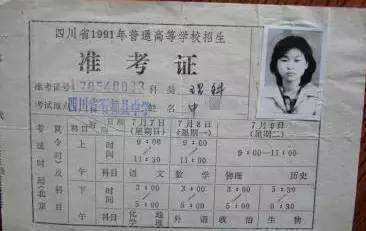 四川省1991年普通高等学校招生
准考证
准考证号 170540033 科类 理科
考试地点 四川省 县中学 姓名 中
考试时间(北京夏令时)及科目
日期 7月7日(星期日) 7月8日(星期一) 7月9日(星期二)
上午 时间 9:00 11:30 9:00 11:00 9:00—11:00
科目 语文 数学 物理 历史
下午 时间 3:00 5:00 3:00 5:00 3:00 5:00 5:30 6:30
科目 化学 地理 外语 政治 生物